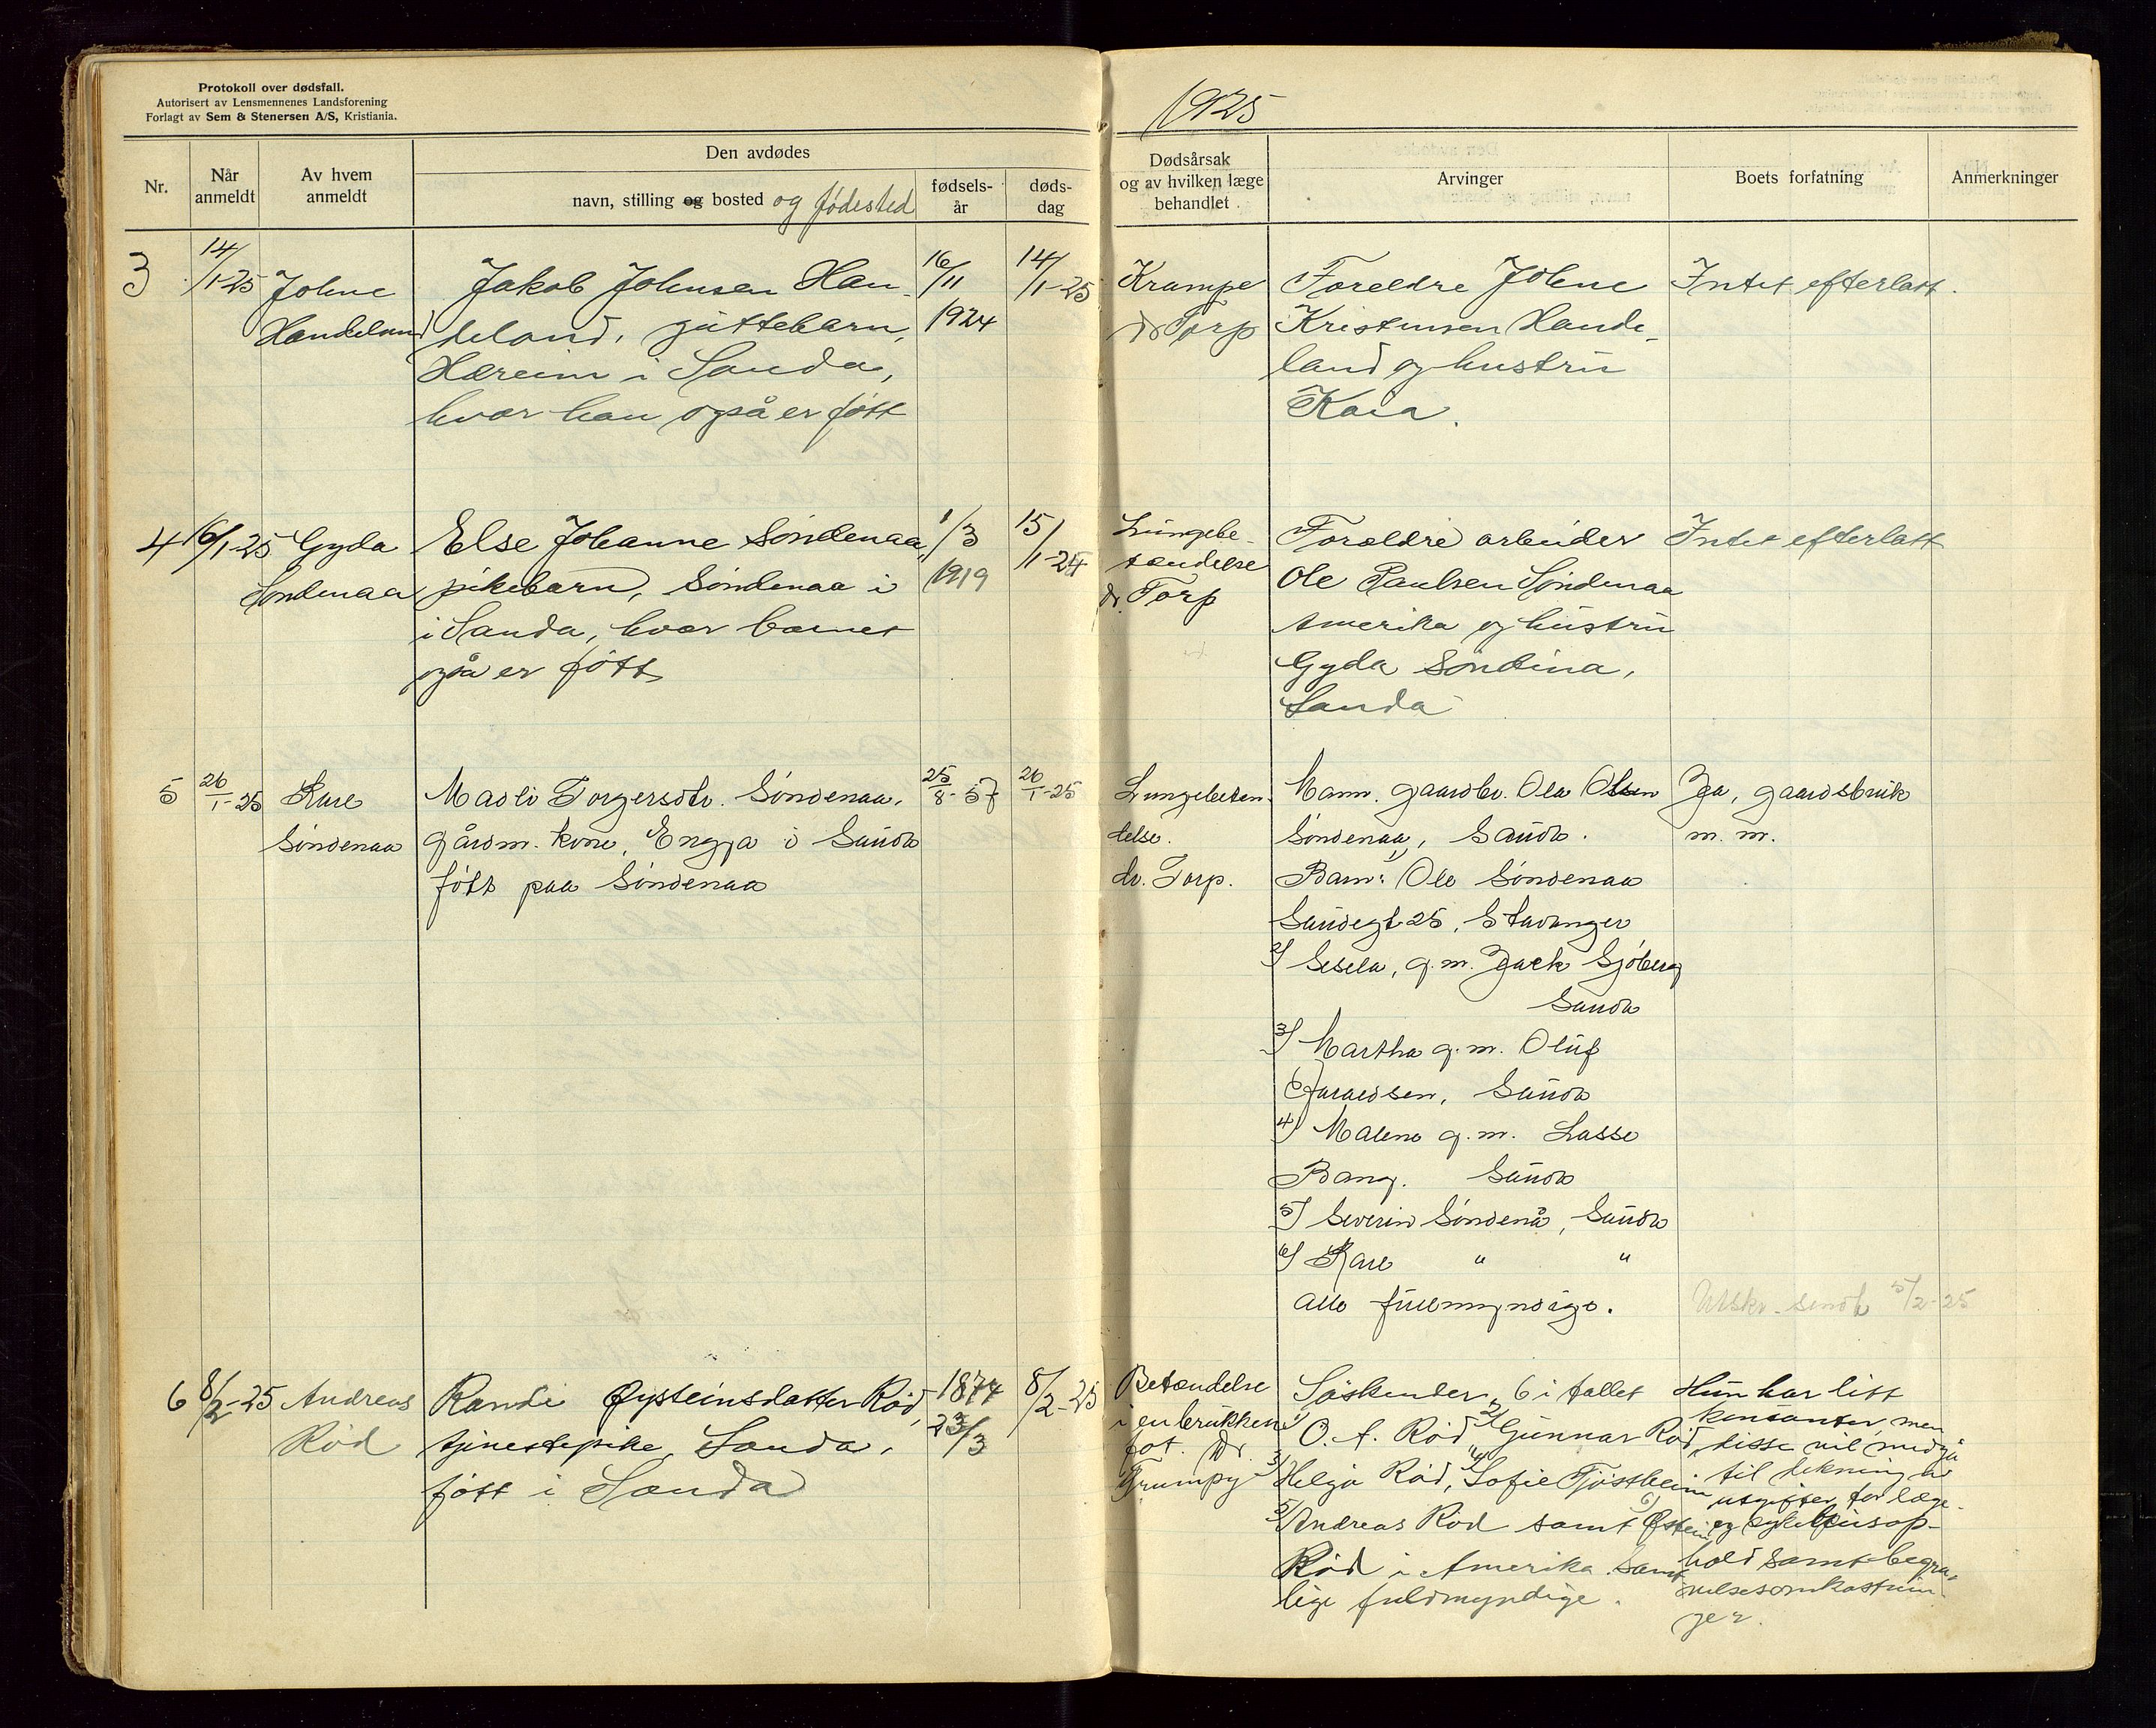 Protokoll over dødsfall.
Autorisert av Lensmennenes Landsforening
Forlagt av Sem & Stenersen A/S, Kristiania.
1925
Nr.
Når
anmeldt
Av hvem
anmeldt
Den avdødes
navn, stilling og bosted og fødested
fødsels-
år
døds-
dag
Dødsårsak
og av hvilken læge
behandlet
Arvinger
Boets forfatning
Anmerkninger
3
14/1-25
Johne
Handeland
Jakob Johnsen Han-
deland, guttebarn,
Hæreim i Sauda,
hvor han også er født
16/11
1924
14/1-25
Krampe
dr Torp
Foreldre Johne
Kristensen Hande-
land og hustru
Kaia.
Intet efterlatt.
4
16/1-25
Gyda
Søndenaa
Else Johanne Søndenaa,
pikebarn, Søndenaa i
i Sauda, hvor barnet
også er født
1/3
1919
15/1-24
Lungebe-
tændelse
dr. Torp
Forældre arbeider
Ole Paulsen Søndenaa
Amerika og hustru
Gyda Søndena,
Sauda
Intet efterlatt
5
26/1-25
Kare
Søndenaa
Madli Torgersdtr. Søndenaa,
gårdm. kone, Engja i Sauda
født paa Søndenaa
25/8-57
26/1-25
Lungebeten-
delse.
dr. Torp.
Mann. gaardbr. Ola Olsen
Søndenaa, Sauda.
Barn: 1) Ole Søndenaa
Sandegt 25, Stavanger
2) Sesela, g.m. Jack Sjöberg
Sauda
3) Martha g.m. Oluf
Sauda
4) Malene g.m. Lasse
Bang. Sauda
5) Severin Søndenå, Sauda
6) Kare " "
alle fullmyndige.
Ja, gaardsbruk
m. m.
Utskr. sendt 5/2-25
6
8/2-25
Andreas
Rød
Randi Øysteinsdatter Rød,
tjenestepike, Sauda,
født i Sauda
1874
23/3
8/2-25
Betændelse
i en brukken
fot. Dr.
Trumpy
Søskender, 6 i tallet
1) O. A. Rød 2) Gunnar Rød,
3) Helga Rød, 4) Sofie Tjøstheim
5) Andreas Rød samt 6) Østein
Rød i Amerika. Samt-
lige fuldmyndige.
Hun har litt
kontanter, men
disse vil medgå
til dekning av
utgifter for læge-
og sykehusop-
hold samt begra-
velsesomkostnin-
ger.